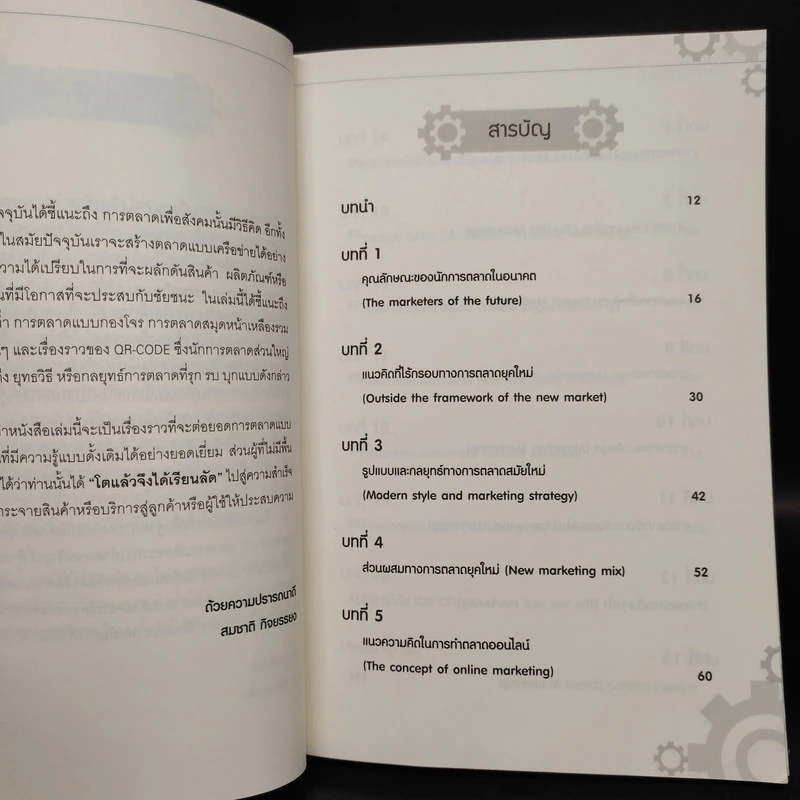 จจุบันได้ชี้แนะถึง การตลาดเพื่อสังคมนั้นมีวิธีคิด อีกทั้ง
ในสมัยปัจจุบันเราจะสร้างตลาดแบบเครือข่ายได้อย่าง
วามได้เปรียบในการที่จะผลักดันสินค้า ผลิตภัณฑ์หรือ
นที่มีโอกาสที่จะประสบกับชัยชนะ ในเล่มนี้ได้ชี้แนะถึง
ำ การตลาดแบบกองโจร การตลาดสมุดหน้าเหลืองรวม
นๆ และเรื่องราวของ QR-CODE ซึ่งนักการตลาดส่วนใหญ่
ถึง ยุทธวิธี หรือกลยุทธ์การตลาดที่รุก รบ บุกแบบดังกล่าว
าหนังสือเล่มนี้จะเป็นเรื่องราวที่จะต่อยอดการตลาดแบบ
ที่มีความรู้แบบดั้งเดิมได้อย่างยอดเยี่ยม ส่วนผู้ที่ไม่มีพื้น
ได้ว่าท่านนั้นได้ "โตแล้วจึงได้เรียนลัด" ไปสู่ความสำเร็จ
กระจายสินค้าหรือบริการสู่ลูกค้าหรือผู้ใช้ให้ประสบความ
ด้วยความปรารถนาดี
สมชาติ กิจยรรยง
สารบัญ
บทนำ 12
บทที่ 1
คุณลักษณะของนักการตลาดในอนาคต
(The marketers of the future) 16
บทที่ 2
แนวคิดที่ไร้กรอบทางการตลาดยุคใหม่
(Outside the framework of the new market) 30
บทที่ 3
รูปแบบและกลยุทธ์ทางการตลาดสมัยใหม่
(Modern style and marketing strategy) 42
บทที่ 4
ส่วนผสมทางการตลาดยุคใหม่ (New marketing mix) 52
บทที่ 5
แนวความคิดในการทำตลาดออนไลน์
(The concept of online marketing) 60